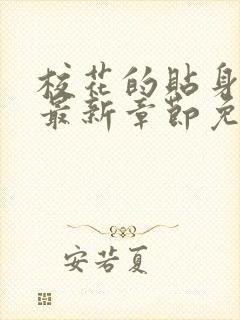 校花的贴身
最新章节免
安若夏